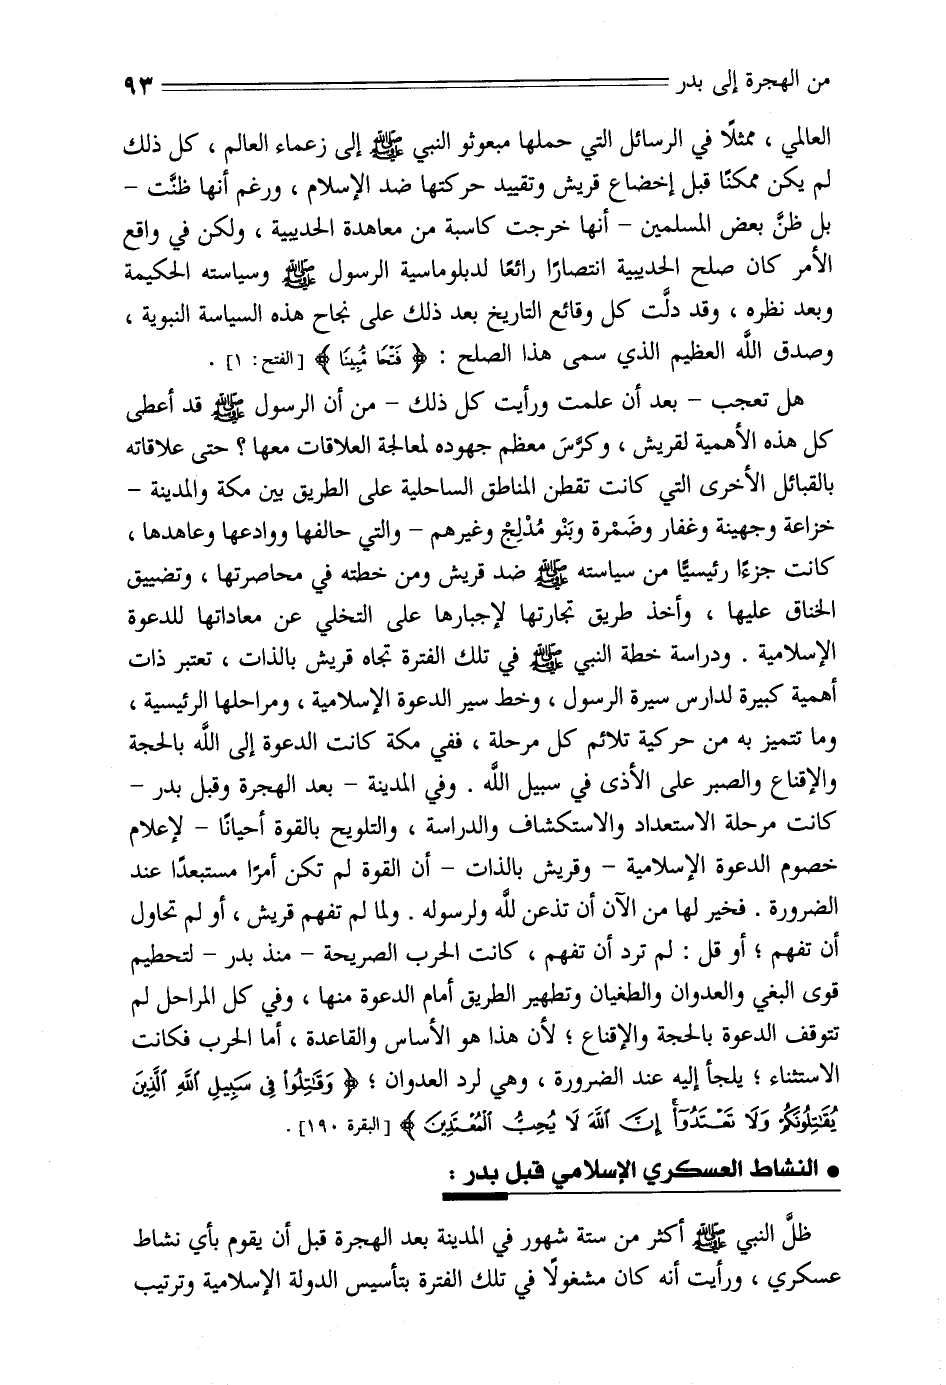 من الهجرة إلى بدر ٩٣
العالمي ، ممثلًا في الرسائل التي حملها مبعوثو النبي ﷺ إلى زعماء العالم ، كل ذلك
لم يكن ممكنًا قبل إخضاع قريش وتقييد حركتها ضد الإسلام ، ورغم أنها ظنَّت –
بل ظنَّ بعض المسلمين – أنها خرجت كاسبة من معاهدة الحديبية ، ولكن في واقع
الأمر كان صلح الحديبية انتصارًا رائعًا لدبلوماسية الرسول ﷺ وسياسته الحكيمة
وبعد نظره ، وقد دلَّت كل وقائع التاريخ بعد ذلك على نجاح هذه السياسة النبوية ،
وصدق اللَّه العظيم الذي سمى هذا الصلح : ﴿ فَتْحًا مُّبِينًا ﴾ [الفتح: ١] .
هل تعجب – بعد أن علمت ورأيت كل ذلك – من أن الرسول ﷺ قد أعطى
كل هذه الأهمية لقريش ، وكرَّسَ معظم جهوده لمعالجة العلاقات معها ؟ حتى علاقاته
بالقبائل الأخرى التي كانت تقطن المناطق الساحلية على الطريق بين مكة والمدينة –
خزاعة وجهينة وغفار وضَمْرة وبَنْو مُدْلِجْ وغيرهم – والتي حالفها ووادعها وعاهدها ،
كانت جزءًا رئيسيًّا من سياسته ﷺ ضد قريش ومن خطته في محاصرتها ، وتضييق
الخناق عليها ، وأخذ طريق تجارتها لإجبارها على التخلي عن معاداتها للدعوة
الإسلامية . ودراسة خطة النبي ﷺ في تلك الفترة تجاه قريش بالذات ، تعتبر ذات
أهمية كبيرة لدارس سيرة الرسول ، وخط سير الدعوة الإسلامية ، ومراحلها الرئيسية ،
وما تتميز به من حركية تلائم كل مرحلة ، ففي مكة كانت الدعوة إلى اللَّه بالحجة
والإقناع والصبر على الأذى في سبيل اللَّه . وفي المدينة – بعد الهجرة وقبل بدر –
كانت مرحلة الاستعداد والاستكشاف والدراسة ، والتلويح بالقوة أحيانًا – لإعلام
خصوم الدعوة الإسلامية – وقريش بالذات – أن القوة لم تكن أمرًا مستبعدًا عند
الضرورة . فخير لها من الآن أن تذعن للَّه ولرسوله . ولما لم تفهم قريش ، أو لم تحاول
أن تفهم ؛ أو قل : لم ترد أن تفهم ، كانت الحرب الصريحة – منذ بدر – لتحطيم
قوى البغي والعدوان والطغيان وتطهير الطريق أمام الدعوة منها ، وفي كل المراحل لم
تتوقف الدعوة بالحجة والإقناع ؛ لأن هذا هو الأساس والقاعدة ، أما الحرب فكانت
الاستثناء ؛ يلجأ إليه عند الضرورة ، وهي لرد العدوان ؛ ﴿ وَقَٰتِلُوا۟ فِى سَبِيلِ ٱللَّهِ ٱلَّذِينَ
يُقَٰتِلُونَكُمْ وَلَا تَعْتَدُوٓا۟ إِنَّ ٱللَّهَ لَا يُحِبُّ ٱلْمُعْتَدِينَ ﴾ [البقرة ١٩٠] .
● النشاط العسكري الإسلامي قبل بدر :
ظلَّ النبي ﷺ أكثر من ستة شهور في المدينة بعد الهجرة قبل أن يقوم بأي نشاط
عسكري ، ورأيت أنه كان مشغولًا في تلك الفترة بتأسيس الدولة الإسلامية وترتيب